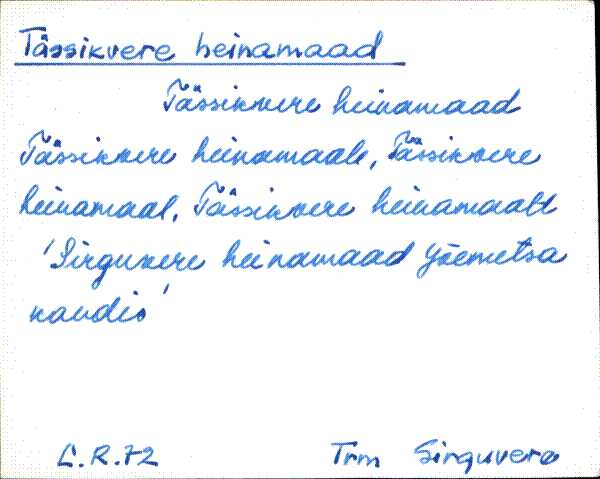 Tässikvere heinamaad
Tässikvere heinamaad
Tässikvere heinamaale, Tässikvere
heinamaal, Tässikvere heinamaalt
'Sirguvere heinamaad Jõemetsa
kandis'
L.R.72 Trm Sirguvere